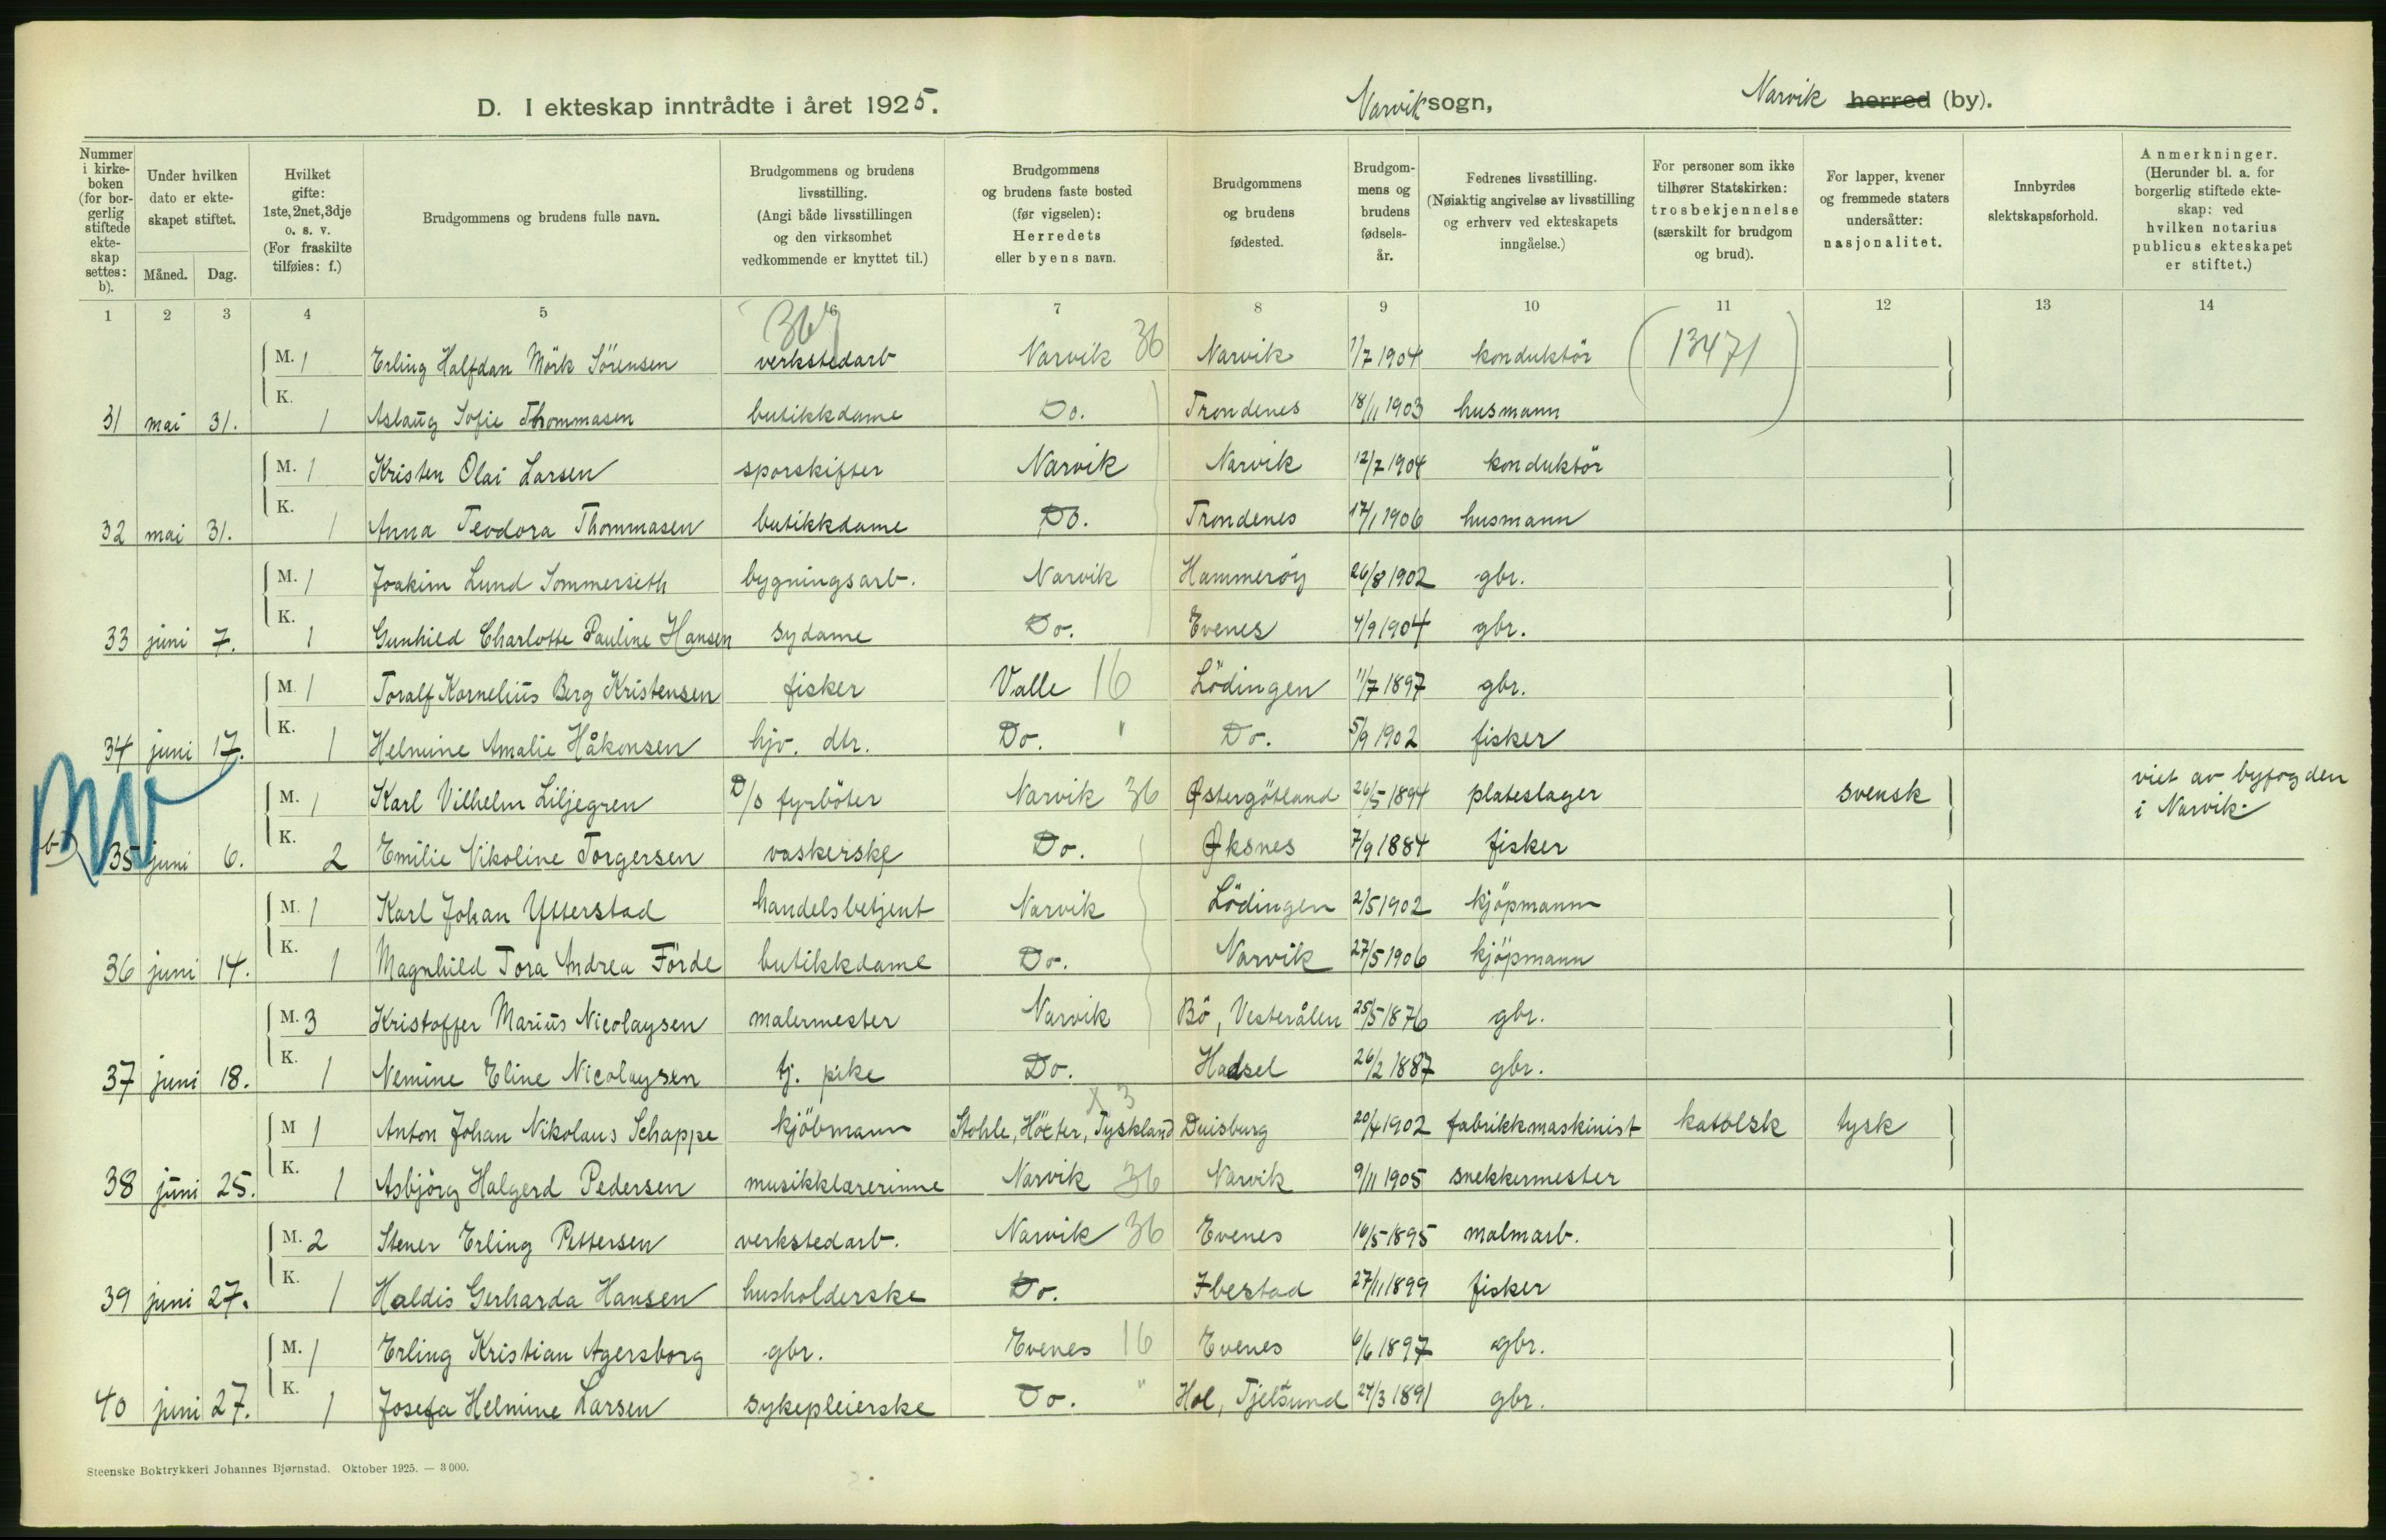 D. I ekteskap inntrådte i året 1925.
Narvik sogn,
Narvik herred (by).
Nummer i kirkeboken (for borgerlig stiftede ekteskap settes: b).
Under hvilken dato er ekteskapet stiftet.
Måned. Dag.
Hvilket gifte: 1ste, 2net, 3dje o. s. v. (For fraskilte tilføies: f.)
Brudgommens og brudens fulle navn.
Brudgommens og brudens livsstilling. (Angi både livsstillingen og den virksomhet vedkommende er knyttet til.)
Brudgommens og brudens faste bosted (før vigselen): Herredets eller byens navn.
Brudgommens og brudens fødested.
Brudgommens og brudens fødselsår.
Fedrenes livsstilling. (Nøiaktig angivelse av livsstilling og erhverv ved ekteskapets inngåelse.)
For personer som ikke tilhører Statskirken: trosbekjennelse (særskilt for brudgom og brud).
For lapper, kvener og fremmede staters undersåtter: nasjonalitet.
Innbyrdes slektskapsforhold.
Anmerkninger. (Herunder bl. a. for borgerlig stiftede ekteskap: ved hvilken notarius publicus ekteskapet er stiftet.)
1 2 3 4 5 6 7 8 9 10 11 12 13 14
M. 1 Erling Halfdan Mörk Sörensen verkstedarb Narvik 36 Narvik 1/7 1904 konduktör (13471)
31 mai 31. K. 1 Aslaug Sofie Thommasen butikkdame Do. Trondenes 18/11 1903 husmann
M. 1 Kristen Olai Larsen sporskifter Narvik Narvik 12/7 1904 konduktör
32 mai 31. K. 1 Anna Teodora Thommasen butikkdame Do. Trondenes 17/1 1906 husmann
M. 1 Joakim Lund Sommerseth bygningsarb. Narvik Hammeröy 26/8 1902 gbr.
33 juni 7. K. 1 Gunhild Charlotte Pauline Hansen sydame Do. Evenes 4/9 1904 gbr.
M. 1 Toralf Kornelius Berg Kristensen fisker Valle 16 Lödingen 11/7 1897 gbr.
34 juni 17. K. 1 Helmine Amalie Håkonsen hjv. dtr. Do. " Do. 5/9 1902 fisker
M. 1 Karl Vilhelm Liljegren D/s fyrböter Narvik 36 Østergötland 26/5 1894 plateslager svensk viet av byfogden
i Narvik.
b) 35 juni 6. K. 2 Emilie Nikoline Torgersen vaskerske Do. Øksnes 7/9 1884 fisker
M. 1 Karl Johan Ytterstad handelsbetjent Narvik Lödingen 2/5 1902 kjöpmann
36 juni 14. K. 1 Magnhild Tora Andrea Förde butikkdame Do. Narvik 27/5 1906 kjöpmann
M. 3 Kristoffer Marius Nicolaysen malermester Narvik Bö, Vesterålen 25/5 1876 gbr.
37 juni 18. K. 1 Nemine Eline Nicolaysen tj. pike Do. Hadsel 26/2 1887 gbr.
x 3
M 1 Anton Johan Nikolaus Schappe kjöbmann Stahle, Höxter, Tyskland Duisburg 20/4 1902 fabrikkmaskinist katolsk tysk
38 juni 25. K. 1 Asbjörg Halgerd Pedersen musikklærerinne Narvik 36 Narvik 9/11 1905 snekkermester
M. 2 Stener Erling Pettersen verkstedarb. Narvik 36 Evenes 16/5 1895 malmarb.
39 juni 27. K. 1 Haldis Gerharda Hansen husholderske Do. Ibestad 27/11 1899 fisker
M. 1 Erling Kristian Agersborg gbr. Evenes 16 Evenes 6/6 1897 gbr.
40 juni 27. K. 1 Josefa Helmine Larsen sykepleierske Do. " Hol, Tjeldsund 24/3 1891 gbr.
Steenske Boktrykkeri Johannes Bjørnstad. Oktober 1925. — 3000.